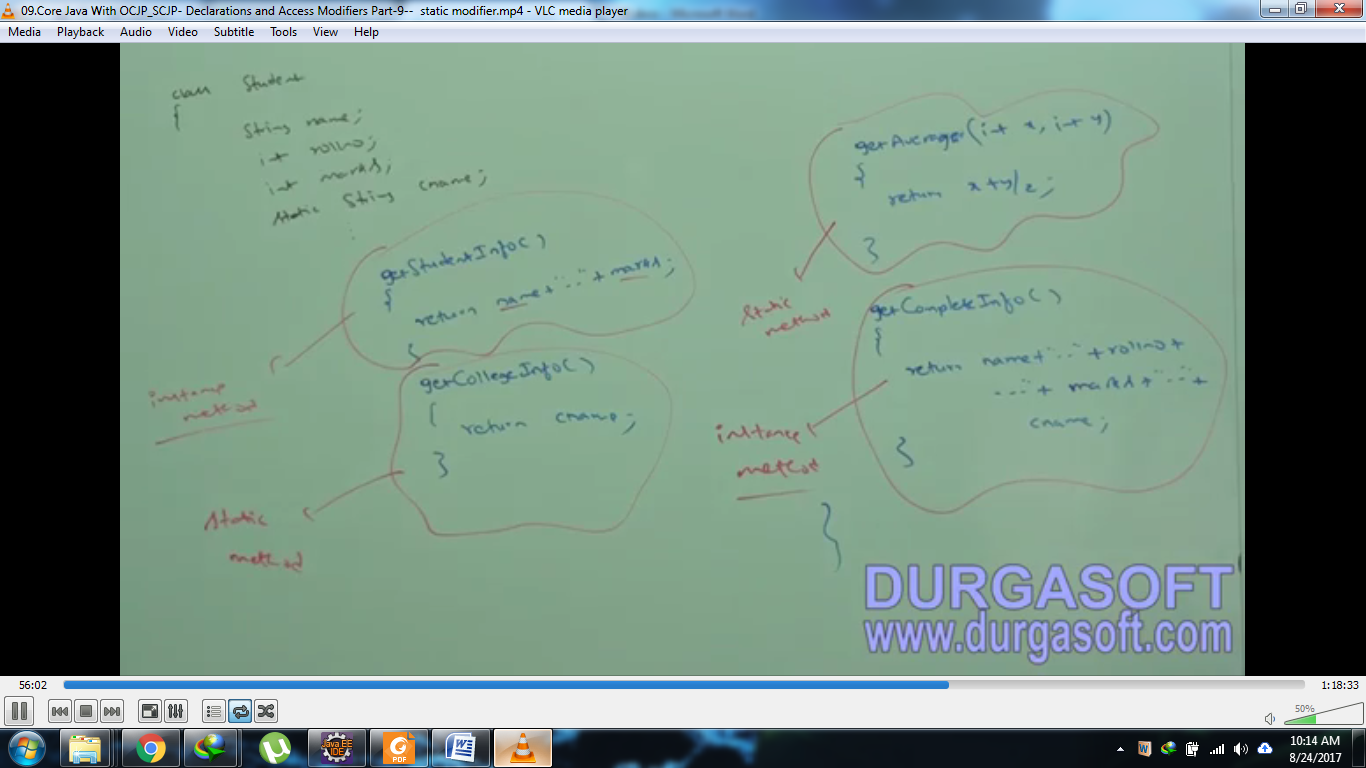 09.Core Java With OCJP_SCJP- Declarations and Access Modifiers Part-9-- static modifier.mp4 - VLC media player
Media Playback Audio Video Subtitle Tools View Help
class Student
{
String name;
int rollno;
int marks;
static String cname;
getStudentInfo()
{
return name+"..."+marks;
}
instance
method
getCollegeInfo()
{
return cname;
}
static
method
getAverage(int x, int y)
{
return x+y/2;
}
static
method
getCompleteInfo()
{
return name+"..."+rollno+
"..."+ marks+"..."+
cname;
}
instance
method
}
DURGASOFT
www.durgasoft.com
56:02
1:18:33
50%
Java EE
IDE
PDF
W
10:14 AM
8/24/2017